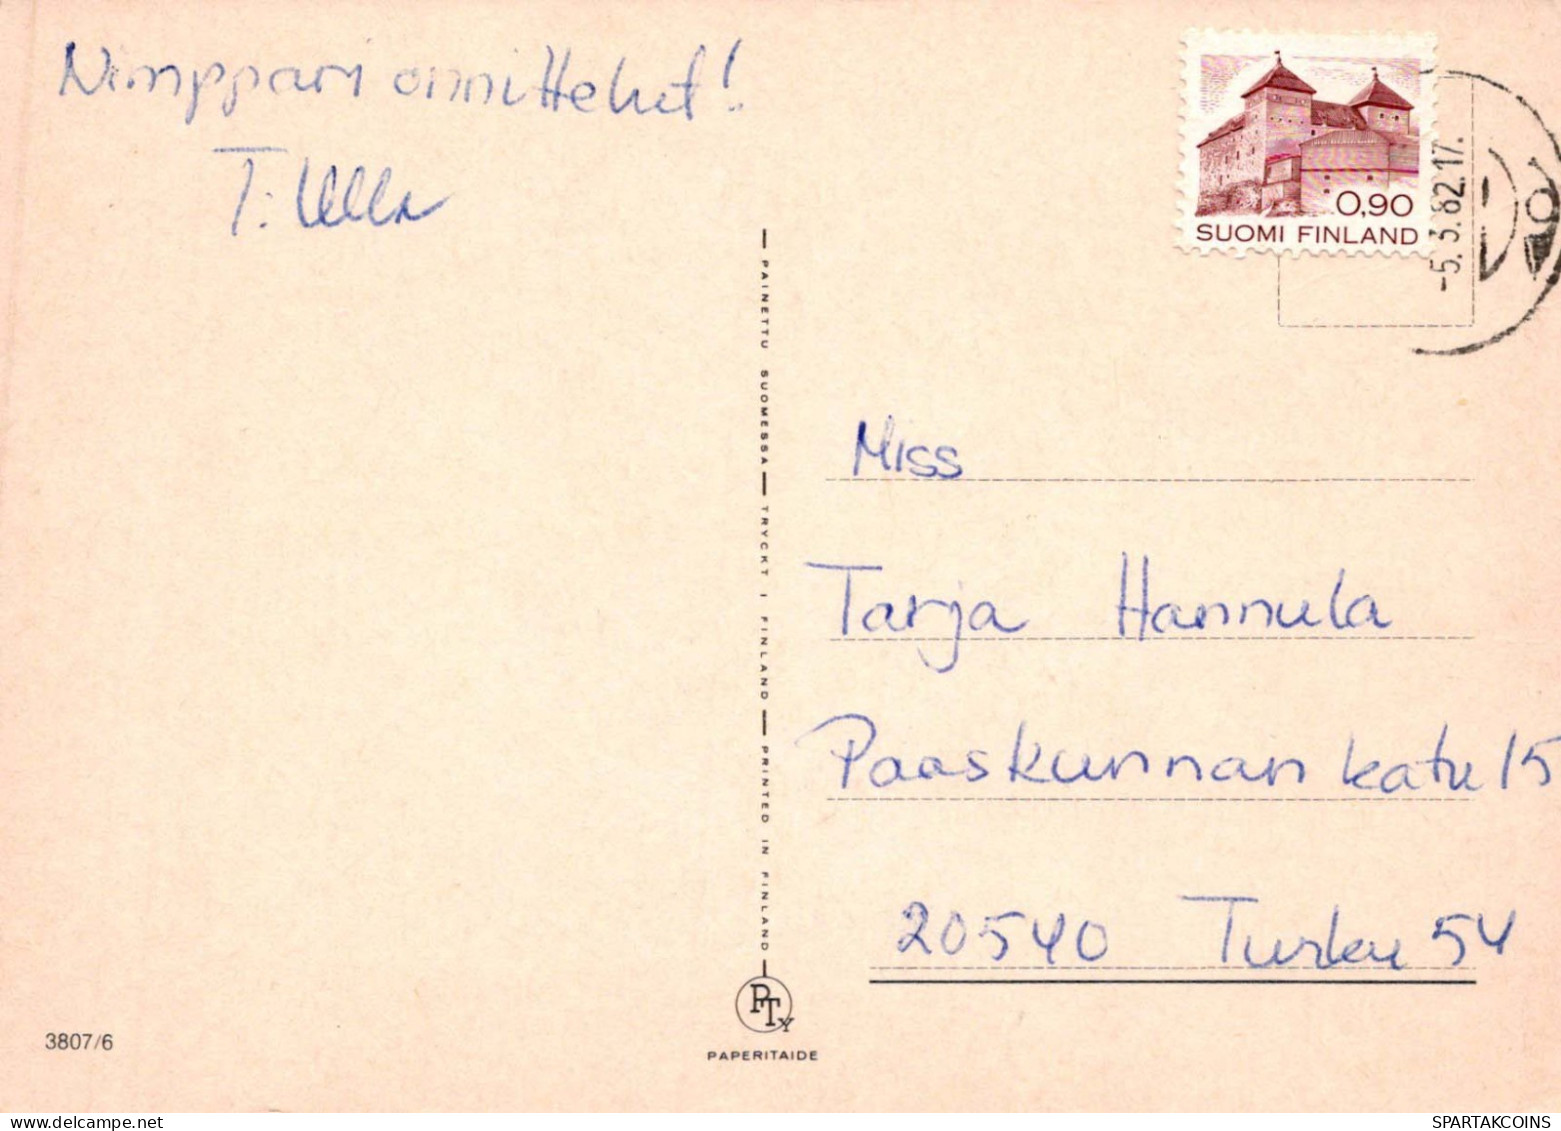 Nimppari onnittelut!
T: Ulla
0,90
SUOMI FINLAND
-5.3.82.17.
PAINETTU SUOMESSA — TRYCKT I FINLAND — PRINTED IN FINLAND
Miss
Tarja Hannula
Paaskunnan katu 15
20540 Turku 54
PTY
PAPERITAIDE
3807/6
delcampe.net
SPARTAKCOINS